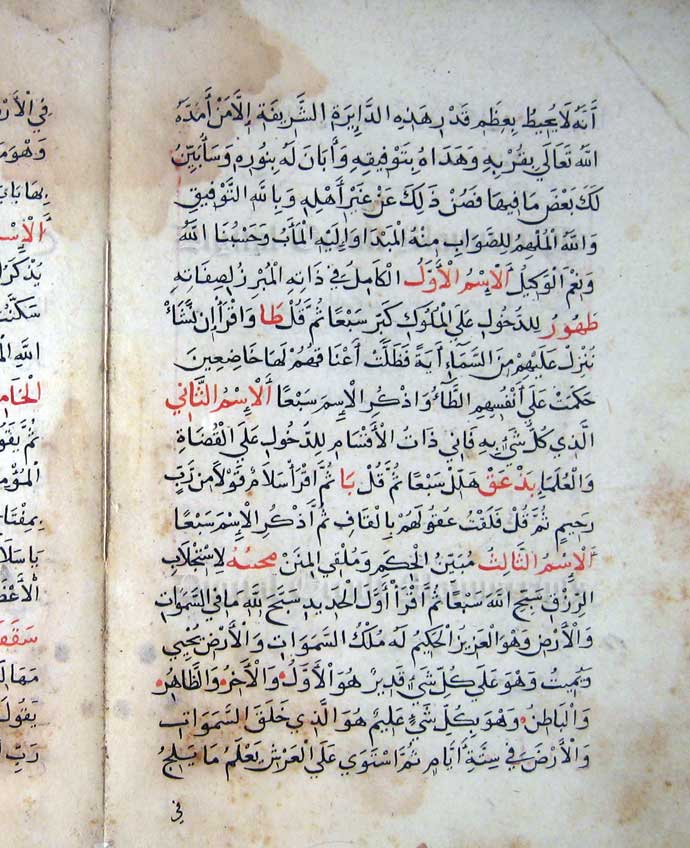 أَنَّهُ لَا يُحِيطُ بِعِظَمِ قَدْرِ هَذِهِ الدَّايِرَةِ الشَّرِيفَةِ إِلَّا مَنْ أَمَدَّهُ
اللهُ تَعَالَي بِقُرْبِهِ وَهَدَاهُ بِتَوْفِيقِهِ وَأَبَانَ لَهُ بِنُورِهِ وَسَأُبَيِّنُ
لَكَ بَعْضَ مَا فِيهَا فَصُنْ ذَلِكَ عَنْ غَيْرِ أَهْلِهِ وَبِاللهِ التَّوْفِيقِ
وَاللهُ الْمُلْهِمُ لِلصَّوَابِ مِنْهُ الْمَبْدَا وَإِلَيْهِ الْمَآبُ وَحَسْبُنَا اللهُ
وَنِعْمَ الْوَكِيلُ الْإِسْمُ الْأَوَّلُ الْكَامِلُ فِي ذَاتِهِ الْمُبْرِزُ لِصِفَاتِهِ
طهُورُ لِلدُّخُولِ عَلَي الْمُلُوكِ كَبِّرْ سَبْعًا ثُمَّ قُلْ طَا وَاقْرَأْ إِنْ نَّشَأْ
نُنَزِّلْ عَلَيْهِمْ مِنَ السَّمَآءِ آيَةً فَظَلَّتْ أَعْنَاقُهُمْ لَهَا خَاضِعِينَ
حَكَمَتْ عَلَي أَنْفُسِهِمِ الطَّآءُ وَاذْكُرِ الْإِسْمَ سَبْعًا الْإِسْمُ الثَّانِي
الَّذِي كُلُّ شَيْءٍ بِهِ فَانِي ذَاتُ الْأَقْسَامِ لِلدُّخُولِ عَلَي الْقُضَاةِ
وَالْعُلَمَاءِ بِدْعَقْ هَلِّلْ سَبْعًا ثُمَّ قُلْ بَا ثُمَّ اقْرَأْ سَلَامٌ قَوْلًا مِن رَّبٍّ
رَحِيمٍ ثُمَّ قُلْ فَلَقْتُ عُقُولَهُمْ بِالْقَافِ ثُمَّ اذْكُرِ الْإِسْمَ سَبْعًا
الْإِسْمُ الثَّالِثُ مُبَيِّنُ الْحِكَمِ وَمُلْقِي الْمِنَنْ لِاسْتِجْلَابِ
الرِّزْقِ سَبِّحِ اللهَ سَبْعًا ثُمَّ اقْرَأْ أَوَّلَ الْحَدِيدِ سَبَّحَ لِلّهِ مَا فِي السَّمَوَاتِ
وَالْأَرْضِ وَهُوَ الْعَزِيزُ الْحَكِيمُ لَهُ مُلْكُ السَّمَوَاتِ وَالْأَرْضِ يُحْيِي
وَيُمِيتُ وَهُوَ عَلَي كُلِّ شَيْءٍ قَدِيرٌ هُوَ الْأَوَّلُ وَالْآخِرُ وَالظَّاهِرُ
وَالْبَاطِنُ وَهُوَ بِكُلِّ شَيْءٍ عَلِيمٌ هُوَ الَّذِي خَلَقَ السَّمَوَاتِ
وَالْأَرْضَ فِي سِتَّةِ أَيَّامٍ ثُمَّ اسْتَوَي عَلَي الْعَرْشِ يَعْلَمُ مَا يَلِجُ
فِي